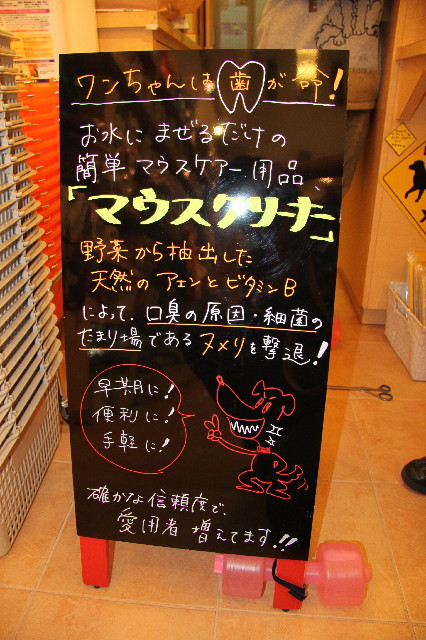 ワンちゃんは歯が命!
お水にまぜるだけの
簡単マウスケアー用品、
「マウスクリーナー」
野菜から抽出した
天然のアエンとビタミンB
によって、口臭の原因・細菌の
たまり場であるヌメリを撃退!
早期に!
便利に!
手軽に!
確かな信頼度で、
愛用者増えてます!!